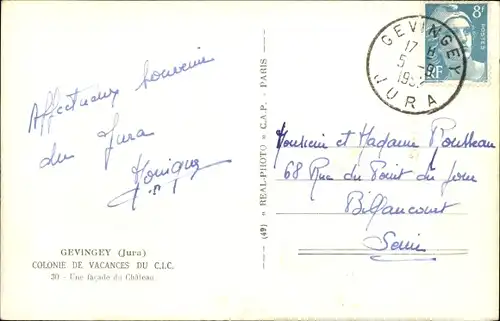 Affectueux souvenir
du Jura
Monique
GEVINGEY (Jura)
COLONIE DE VACANCES DU C.I.C.
20 - Une façade du Château
(49) « REAL-PHOTO » C.A.P. - PARIS
8F
POSTES
RF
GEVINGEY
17 H
5 - 9
JURA
Monsieur et Madame Rousseau
68 Rue du Point du Jour
Billancourt
Seine